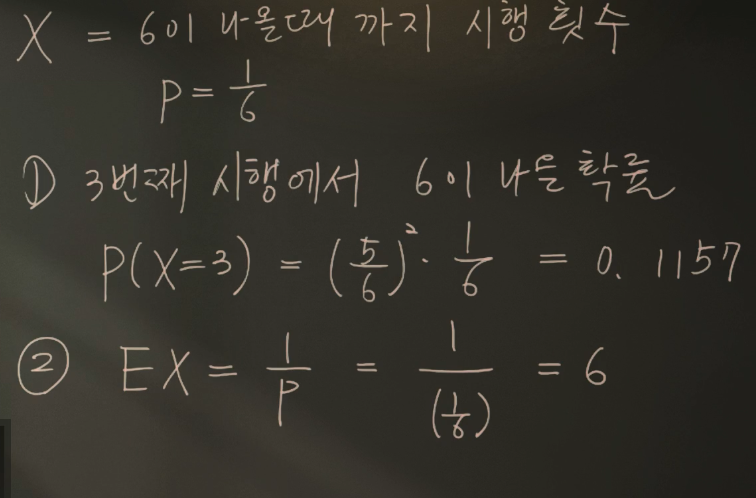 X = 6이 나올때 까지 시행 횟수
P = 1/6
① 3번째 시행에서 6이 나올 확률
P(X=3) = (5/6)² · 1/6 = 0.1157
② EX = 1/P = 1/(1/6) = 6